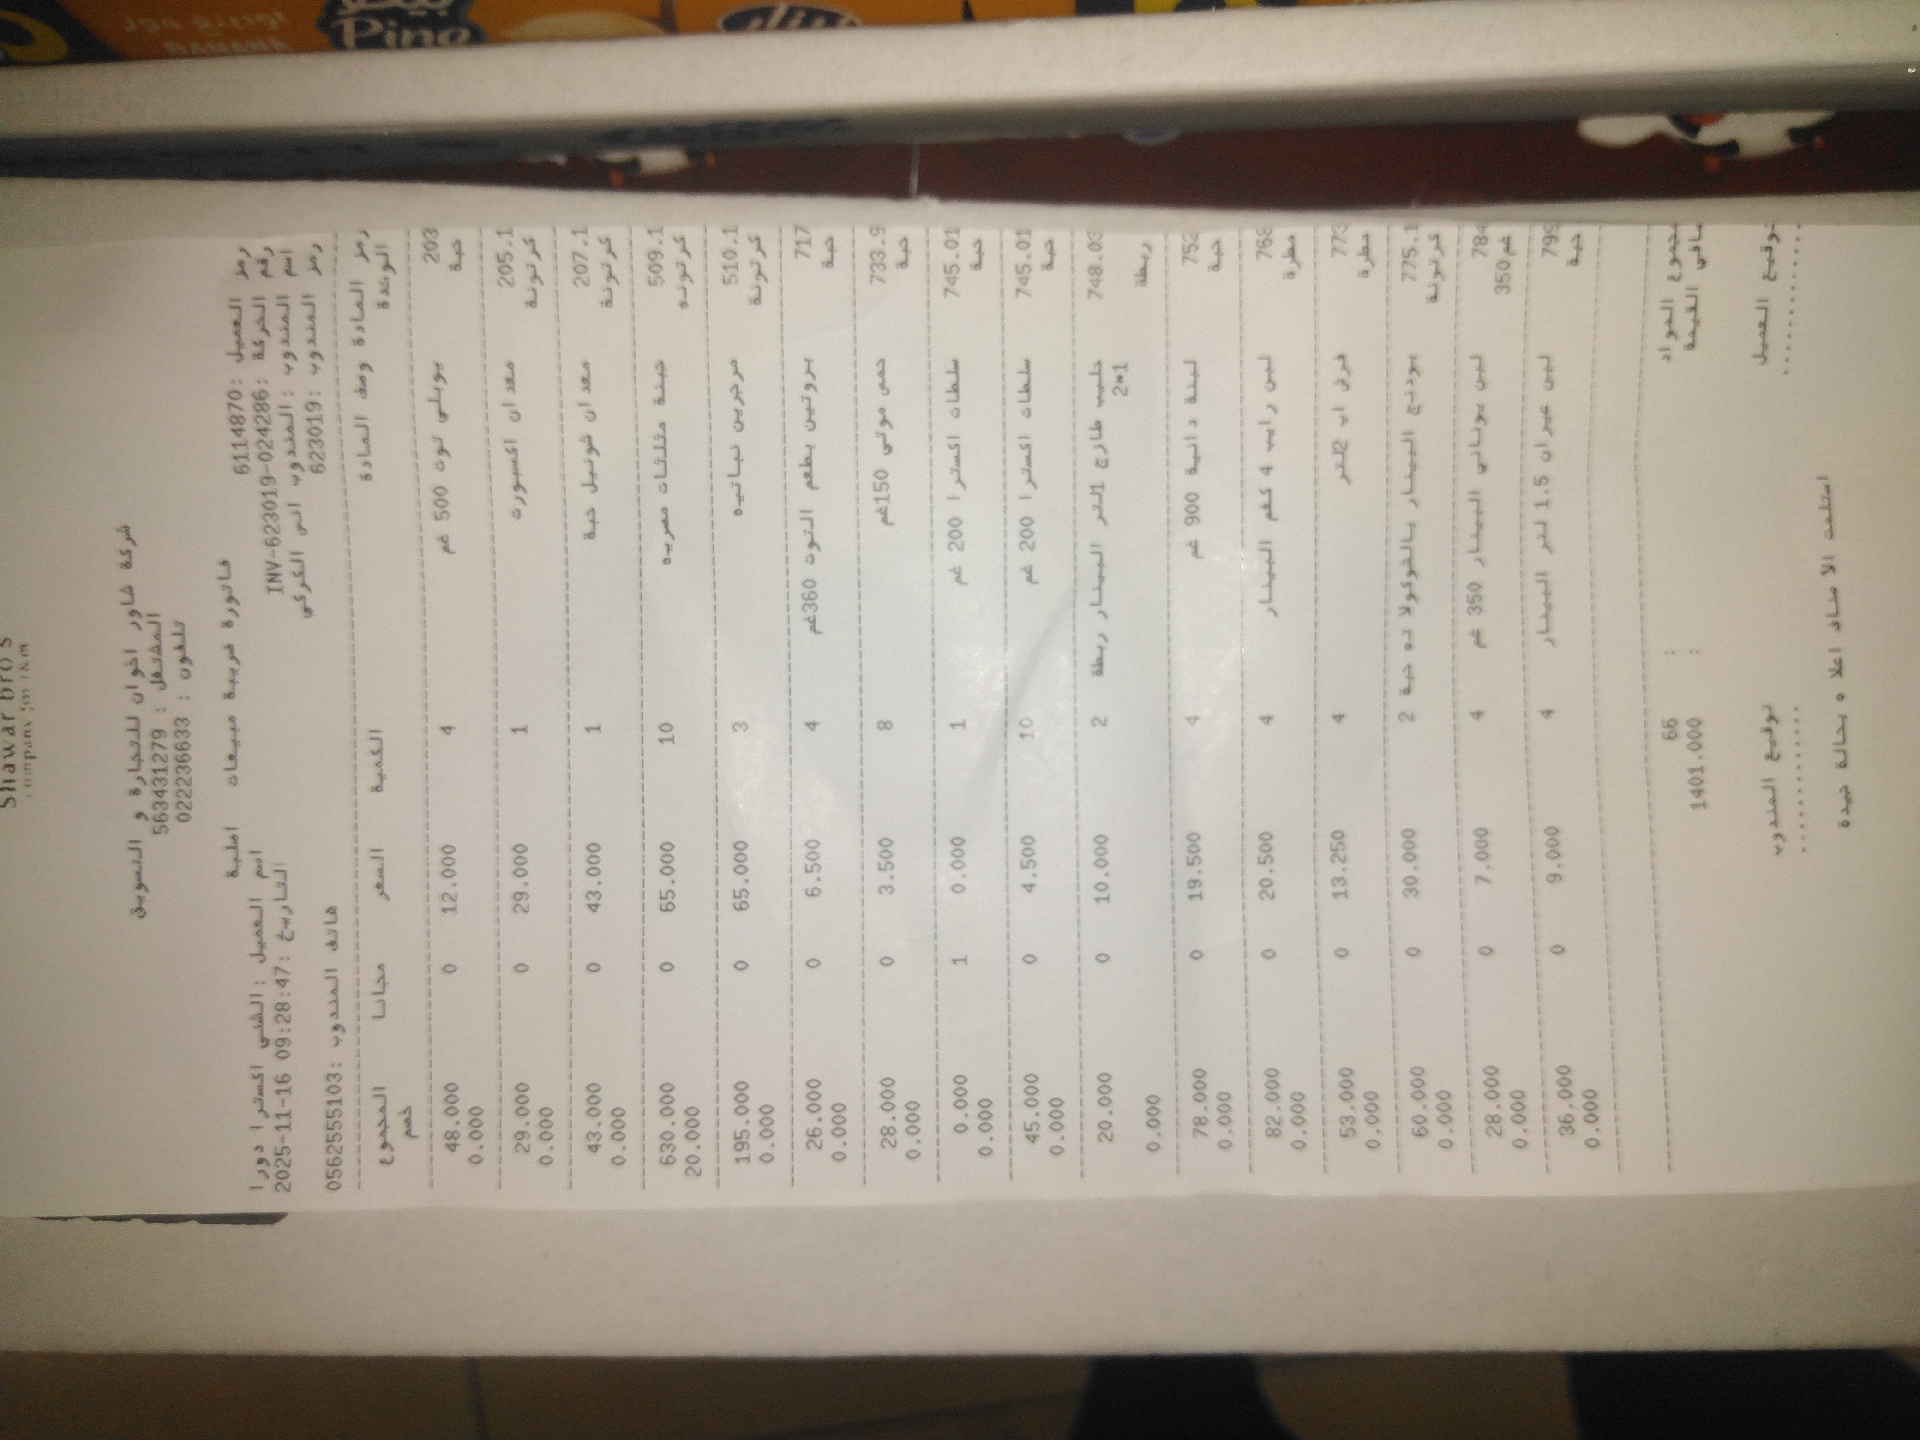 Pino
Shawar bros
company for t&m
شركة شاور اخوان للتجارة و التسويق
المشتغل : 563431279
تلفون : 022236633
فاتورة ضريبية مبيعات اصلية
رمز العميل :6114870 اسم العميل :الشني اكسترا دورا
رقم الحركة :INV-623019-024286 التاريخ :2025-11-16 09:28:47
اسم المندوب :المندوب انس الكركي
رمز المندوب :623019 هاتف المندوب :0562555103
رمز المادة وصف المادة الكمية السعر مجانا المجموع
الوحدة خصم
203 بويلي توت 500 غم 4 12.000 0 48.000
حبة 0.000
205.1 معدان اكسبورت 1 29.000 0 29.000
كرتونة 0.000
207.1 معدان فونيل حبة 1 43.000 0 43.000
كرتونة 0.000
509.1 جبنة مثلثات مصريه 10 65.000 0 630.000
كرتونه 20.000
510.1 مرجرين نباتيه 3 65.000 0 195.000
كرتونة 0.000
717 بروتين بطعم التوت 360غم 4 6.500 0 26.000
حبة 0.000
733.9 حمص موتي 150غم 8 3.500 0 28.000
حبة 0.000
745.01 سلطات اكسترا 200 غم 1 0.000 1 0.000
حبة 0.000
745.01 سلطات اكسترا 200 غم 10 4.500 0 45.000
حبة 0.000
748.03 حليب طازج 1لتر البينار ربطة 2 10.000 0 20.000
2*1
ربطة 0.000
752 لبنة دانية 900 غم 4 19.500 0 78.000
حبة 0.000
768 لبن رايب 4 كغم البينار 4 20.500 0 82.000
مطرة 0.000
773 فرش اب 2لتر 4 13.250 0 53.000
مطرة 0.000
775.1 بودنج البينار بالشوكولا ته حبة 2 30.000 0 60.000
كرتونة 0.000
784 لبن يوناني البينار 350 غم 4 7.000 0 28.000
350غم 0.000
799 لبن عيران 1.5 لتر البينار 4 9.000 0 36.000
حبة 0.000
مجموع المواد : 66
صافي القيمة : 1401.000
توقيع العميل توقيع المندوب
............ ............
استلمت الاصناف اعلاه بحالة جيدة